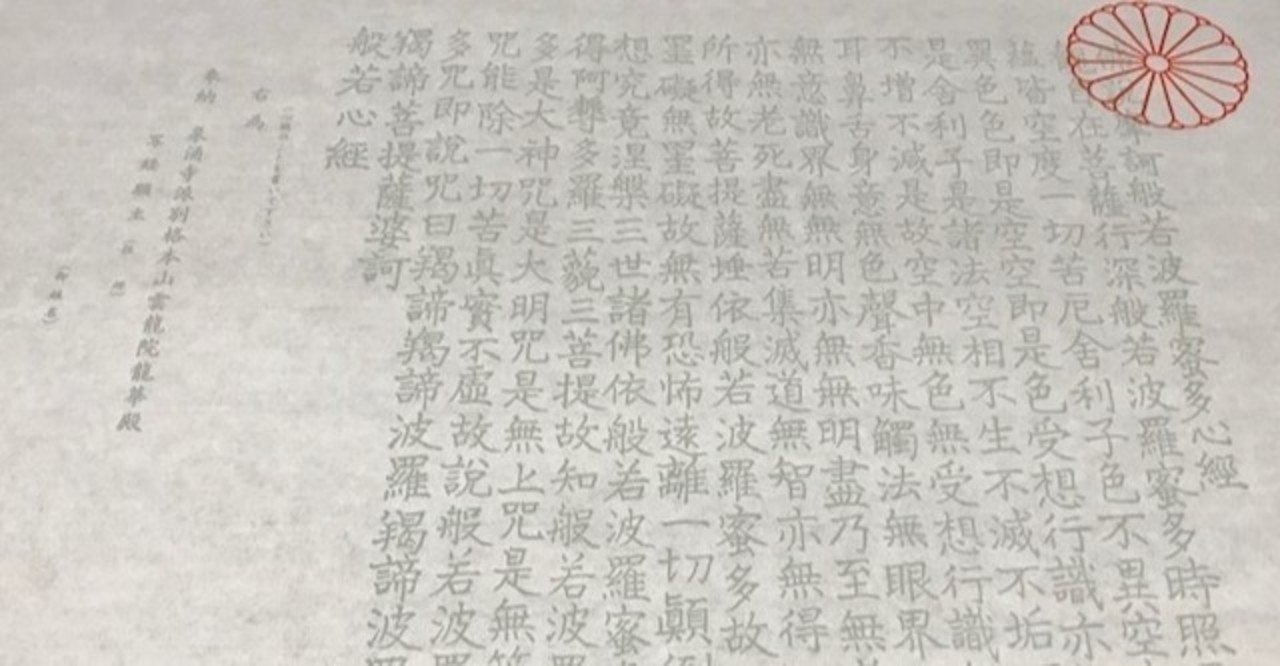 佛說摩訶般若波羅蜜多心經
觀自在菩薩行深般若波羅蜜多時照
蘊皆空度一切苦厄舍利子色不異空
異色色即是空空即是色受想行識亦
是舍利子是諸法空相不生不滅不垢
不增不減是故空中無色無受想行識
耳鼻舌身意無色聲香味觸法無眼界
無意識界無無明亦無無明盡乃至無
亦無老死盡無苦集滅道無智亦無得
所得故菩提薩埵依般若波羅蜜多故
罣礙無罣礙故無有恐怖遠離一切顛
想究竟涅槃三世諸佛依般若波羅蜜
得阿耨多羅三藐三菩提故知般若波
多是大神咒是大明咒是無上咒是無等
咒能除一切苦眞實不虛故說般若波
多咒即說咒曰羯諦羯諦波羅羯諦波
羯諦菩提薩婆訶
般若心經
右為
奉納 泉涌寺派別格本山雲龍院龍華殿
写経願主
(御姓名)